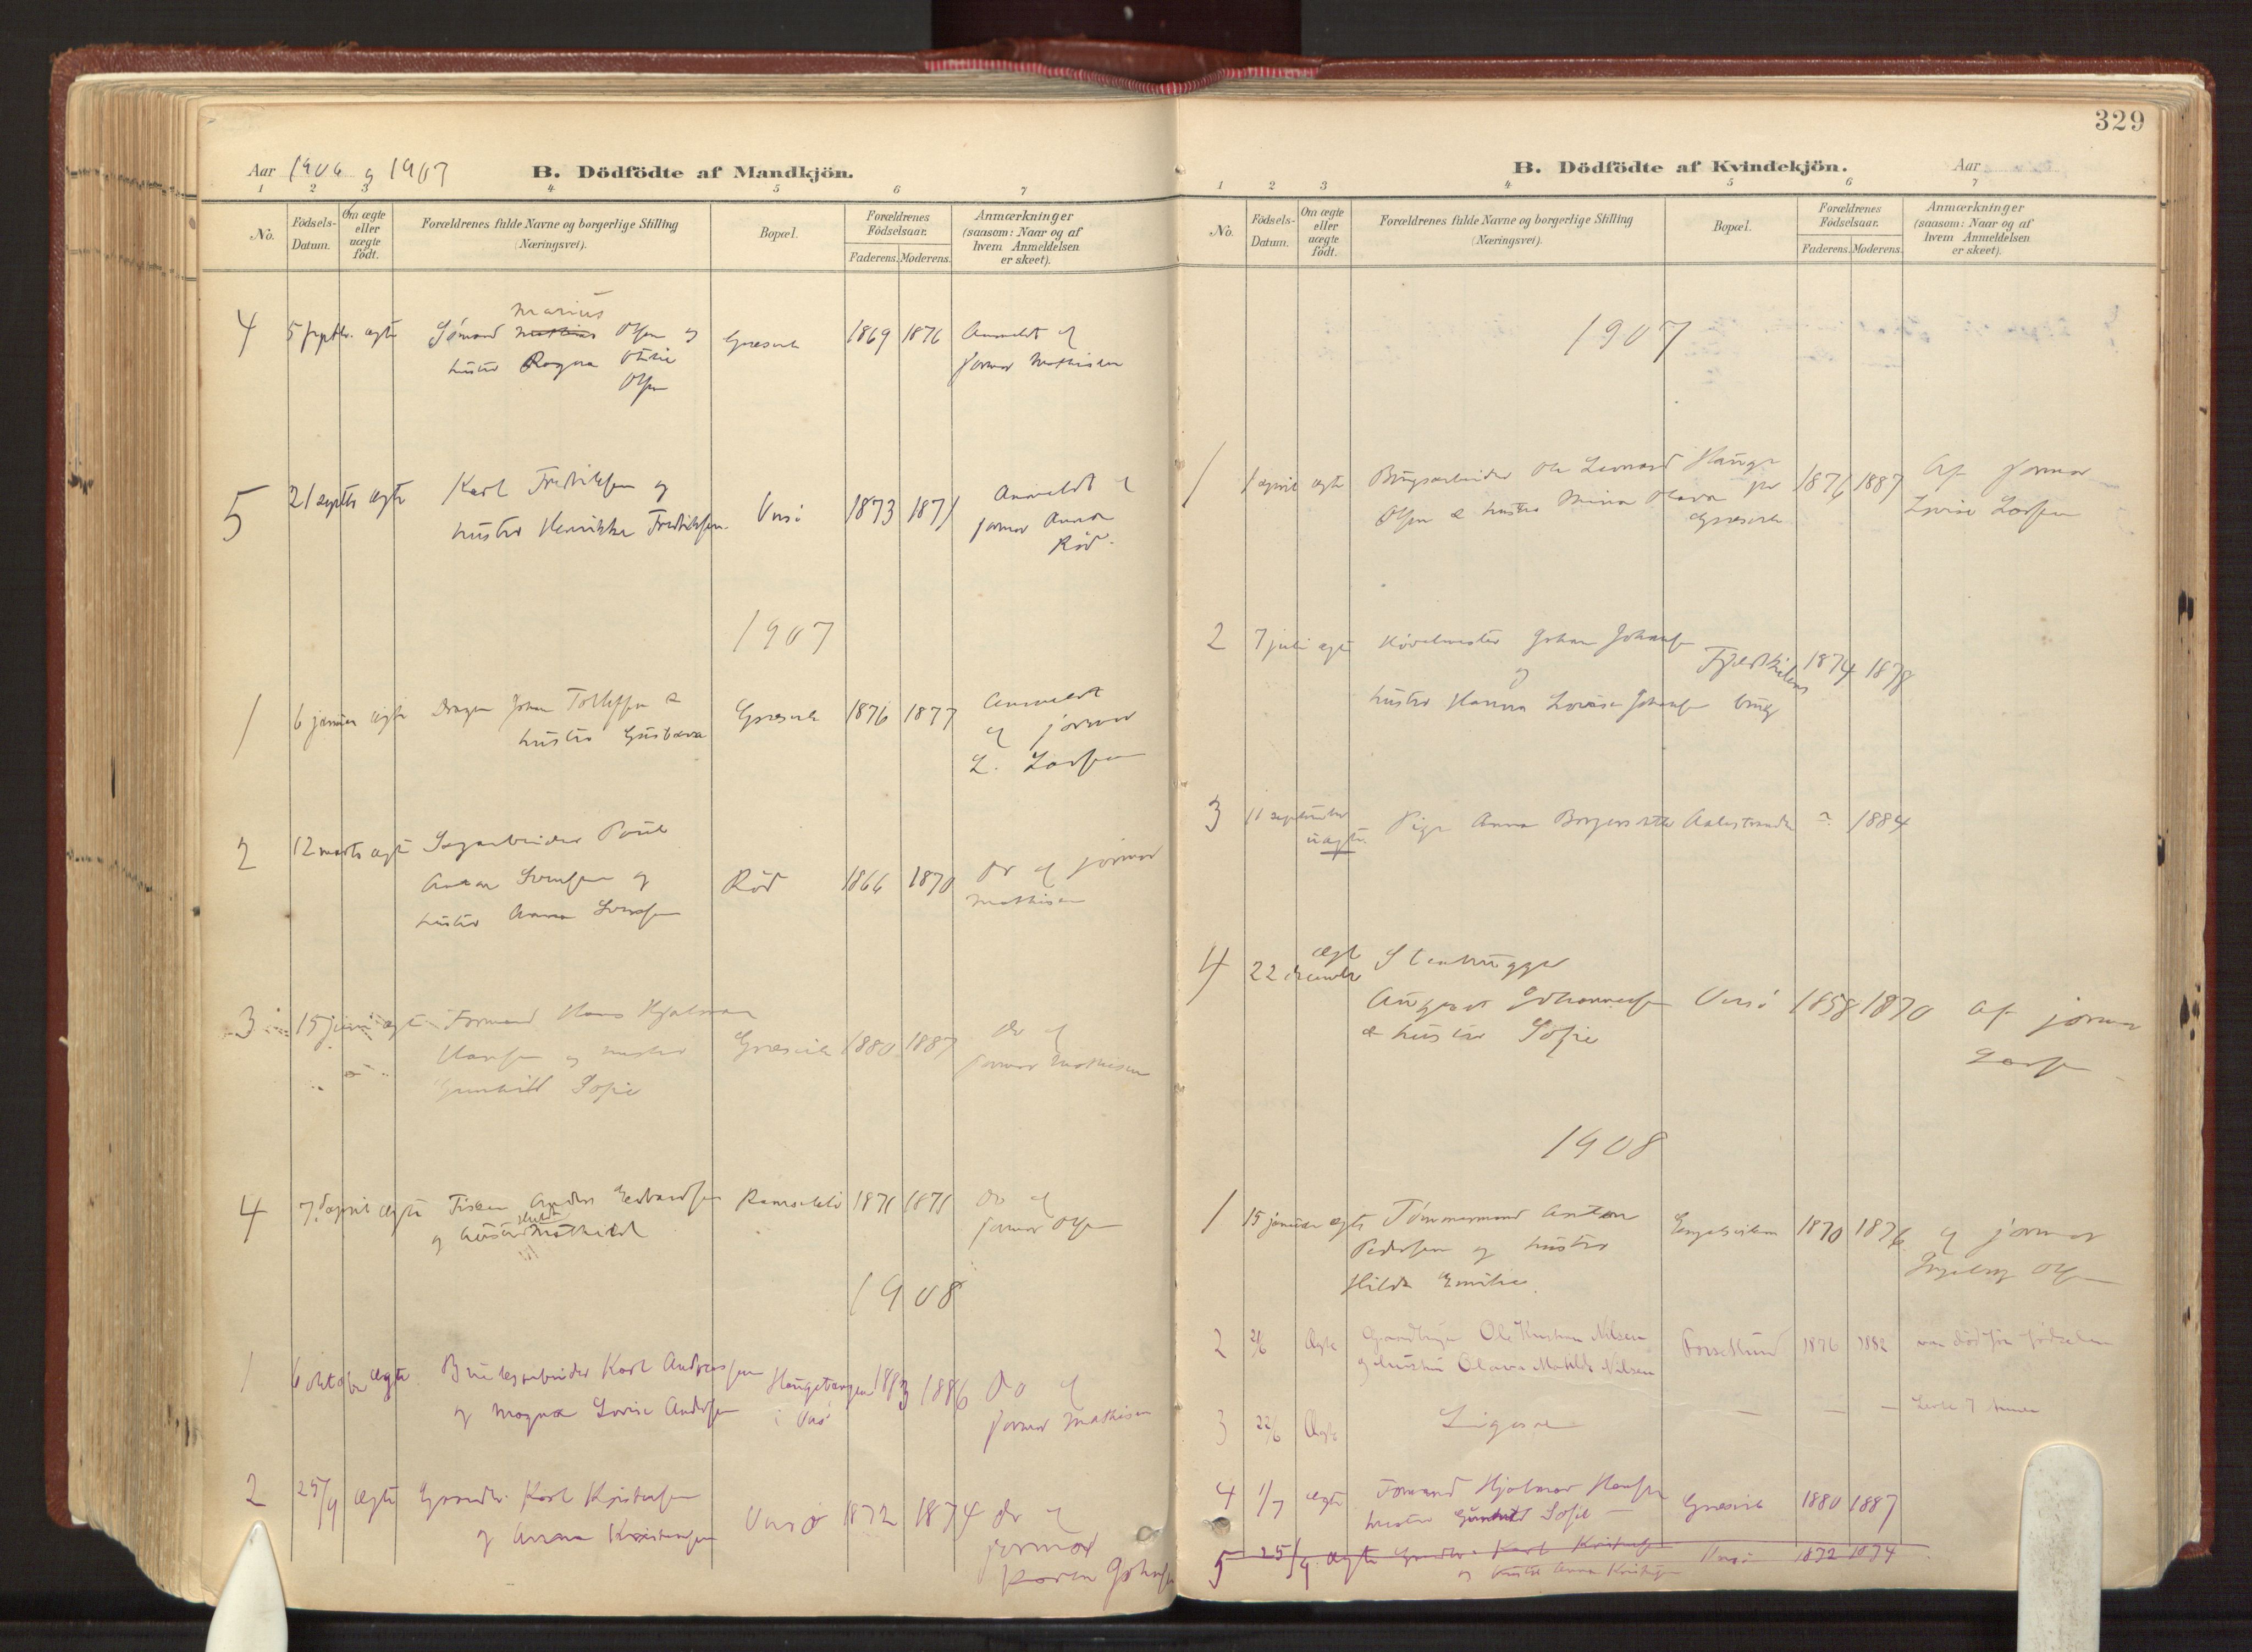 329
Aar 1906 og 1907 B. Dödfödte af Mandkjön.
1 2 3 4 5 6 7
No. Födsels-Datum. Om ægte eller uægte födt. Forældrenes fulde Navne og borgerlige Stilling (Næringsvei). Bopæl. Forældrenes Födselsaar. Faderens. Moderens. Anmærkninger (saasom: Naar og af hvem Anmeldelsen er skeet).
Marius
4 5 septbr. ægte Sömand Olsen og Gresvik 1869 1876 Anmeldt af
hustru Ragna Otilie jormor Mathisen
Olsen
5 21 septbr ægte Karl Fredriksen og Onsö 1873 1871 Anmeldt af
hustru Henrikke Fredriksen. jormor Anna
Röd.
1907
1 6 januar ægte Dragon Johan Tollefsen & Gresvik 1876 1877 Anmeldt
hustru Gustava af jormor
L. Larsen
2 12 marts ægte Sagarbeider Poul
Anton Svendsen og Röd 1866 1870 do af jormor
hustru Anna Svendsen Mathisen
3 15 juni ægte Formand Hans Hjalmar
Hansen og hustru Gresvik 1880 1887 do af
Gunhild Sofie jormor Mathisen
4 7 april ægte Fisker Anders Edvardsen 1871 1871 do af
og hustru Hulda Mathilde jormor Olsen
1908
1 6 oktober ægte Brugsarbeider Karl Andreassen Haugetangen 1883 1886 do af
og Magna Lovise Andersen i Onsö jormor Mathisen
2 25/9 ægte Grundbr. Karl Kristensen
og Anna Kristensen Onsö 1872 1874 do af
jormor
Karen Johnsen
B. Dödfödte af Kvindekjön. Aar
1 2 3 4 5 6 7
No. Födsels-Datum. Om ægte eller uægte födt. Forældrenes fulde Navne og borgerlige Stilling (Næringsvei). Bopæl. Forældrenes Födselsaar. Faderens. Moderens. Anmærkninger (saasom: Naar og af hvem Anmeldelsen er skeet).
1907
1 1 april ægte Brugsarbeider Ole Leonard Hauge 1876 1887 Af jormor
Olsen & hustru Mina Olava pr Gresvik Lovise Larsen
2 7 juli ægte Hövelmester Johan Johansen
og Fjeldskilens 1874 1878
hustru Hanna Lovise Johansen brug
3 11 september Pige Anna Aalestranden ? 1884
uægte.
ægte
4 22 december Stenhugger
August Johannesen Onsö 1858 1870 Af jormor
& hustru Sofie Larsen
1908
1 15 januar ægte Tömmermand Anton Engelsviken 1870 1876 af jormor
Pedersen og hustru Ingeborg Olsen
Hilda Emilie.
2 2/6 Ægte Ole Kristian Nilsen 1876 1882 var död för födselen
og hustru Olava Matilde Nilsen
3 22/6 Ægte Ligesaa — — — Levde 7
4 1/7 ægte Formand Hjalmar Hansen Gresvik 1880 1887
hustru Gunhild Sofie
5 25/9 ægte Grundbr. Karl Kristensen Onsö 1872 1874
og hustru Anna Kristensen